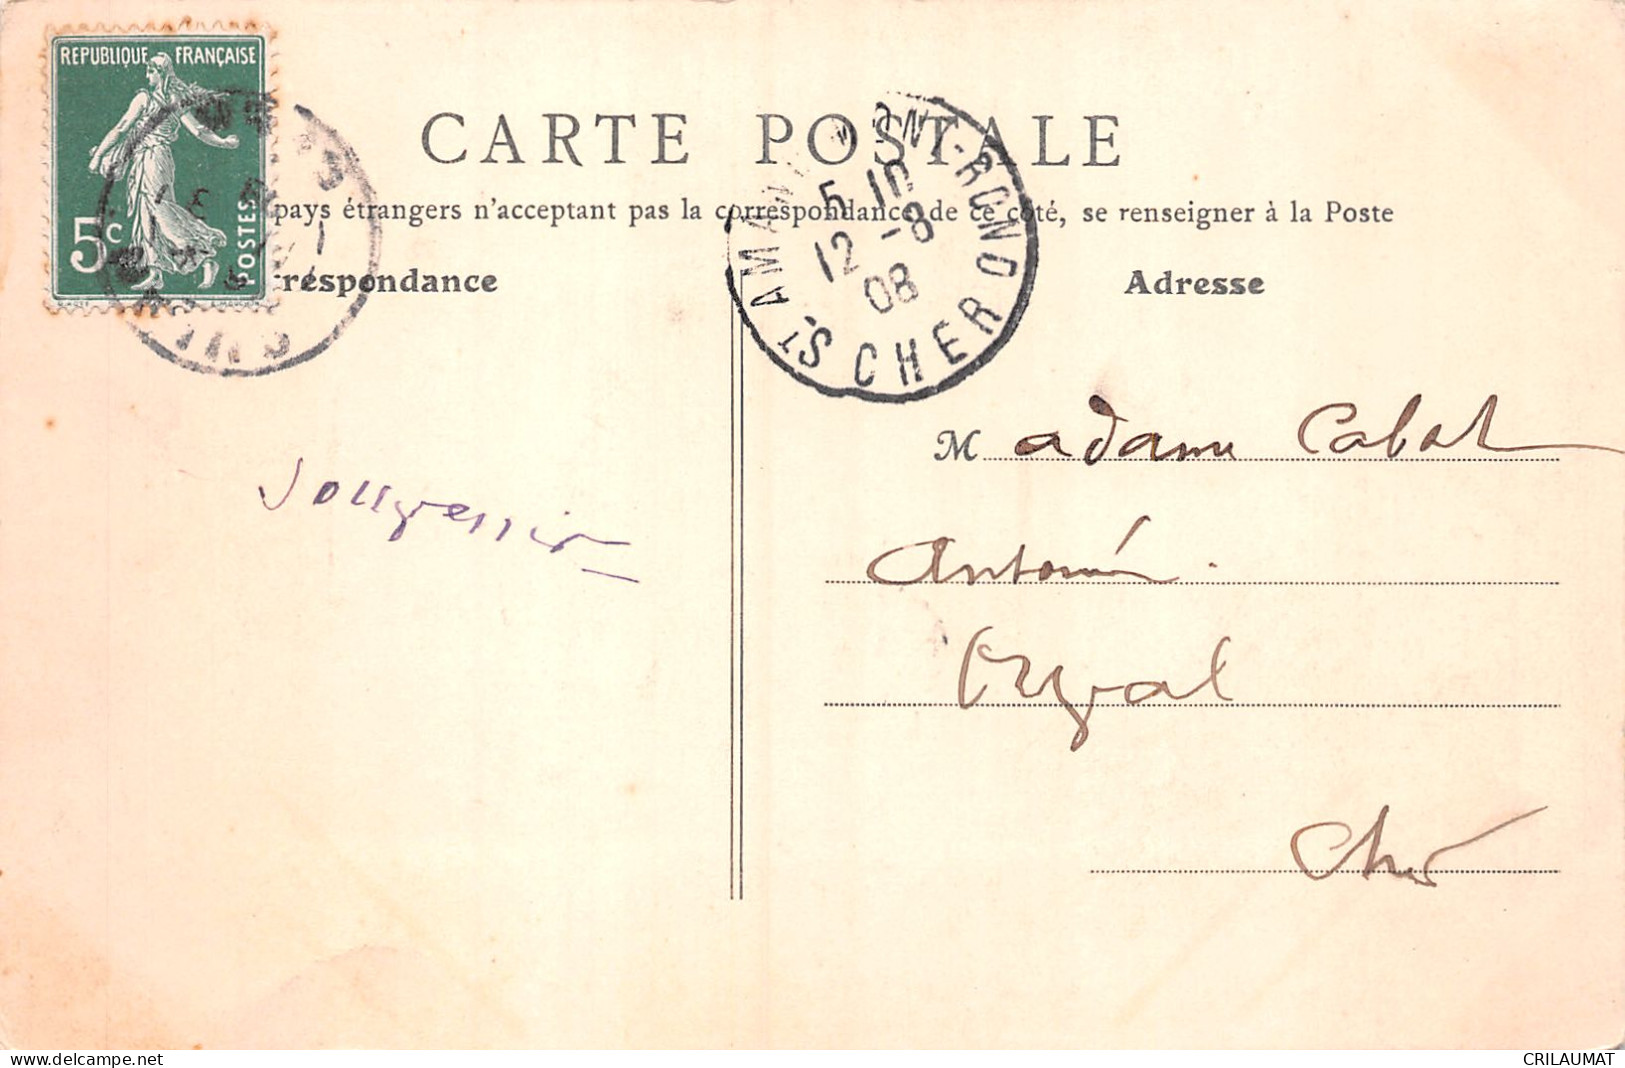 REPUBLIQUE FRANÇAISE
5c
POSTES
CARTE POSTALE
pays étrangers n'acceptant pas la correspondance de ce côté, se renseigner à la Poste
respondance
Adresse
ST AMAND-MONT-ROND
CHER
5 10
12 -8
08
Madame Cabat
Antonin
Orval
Cher
delcampe.net
CRILAUMAT